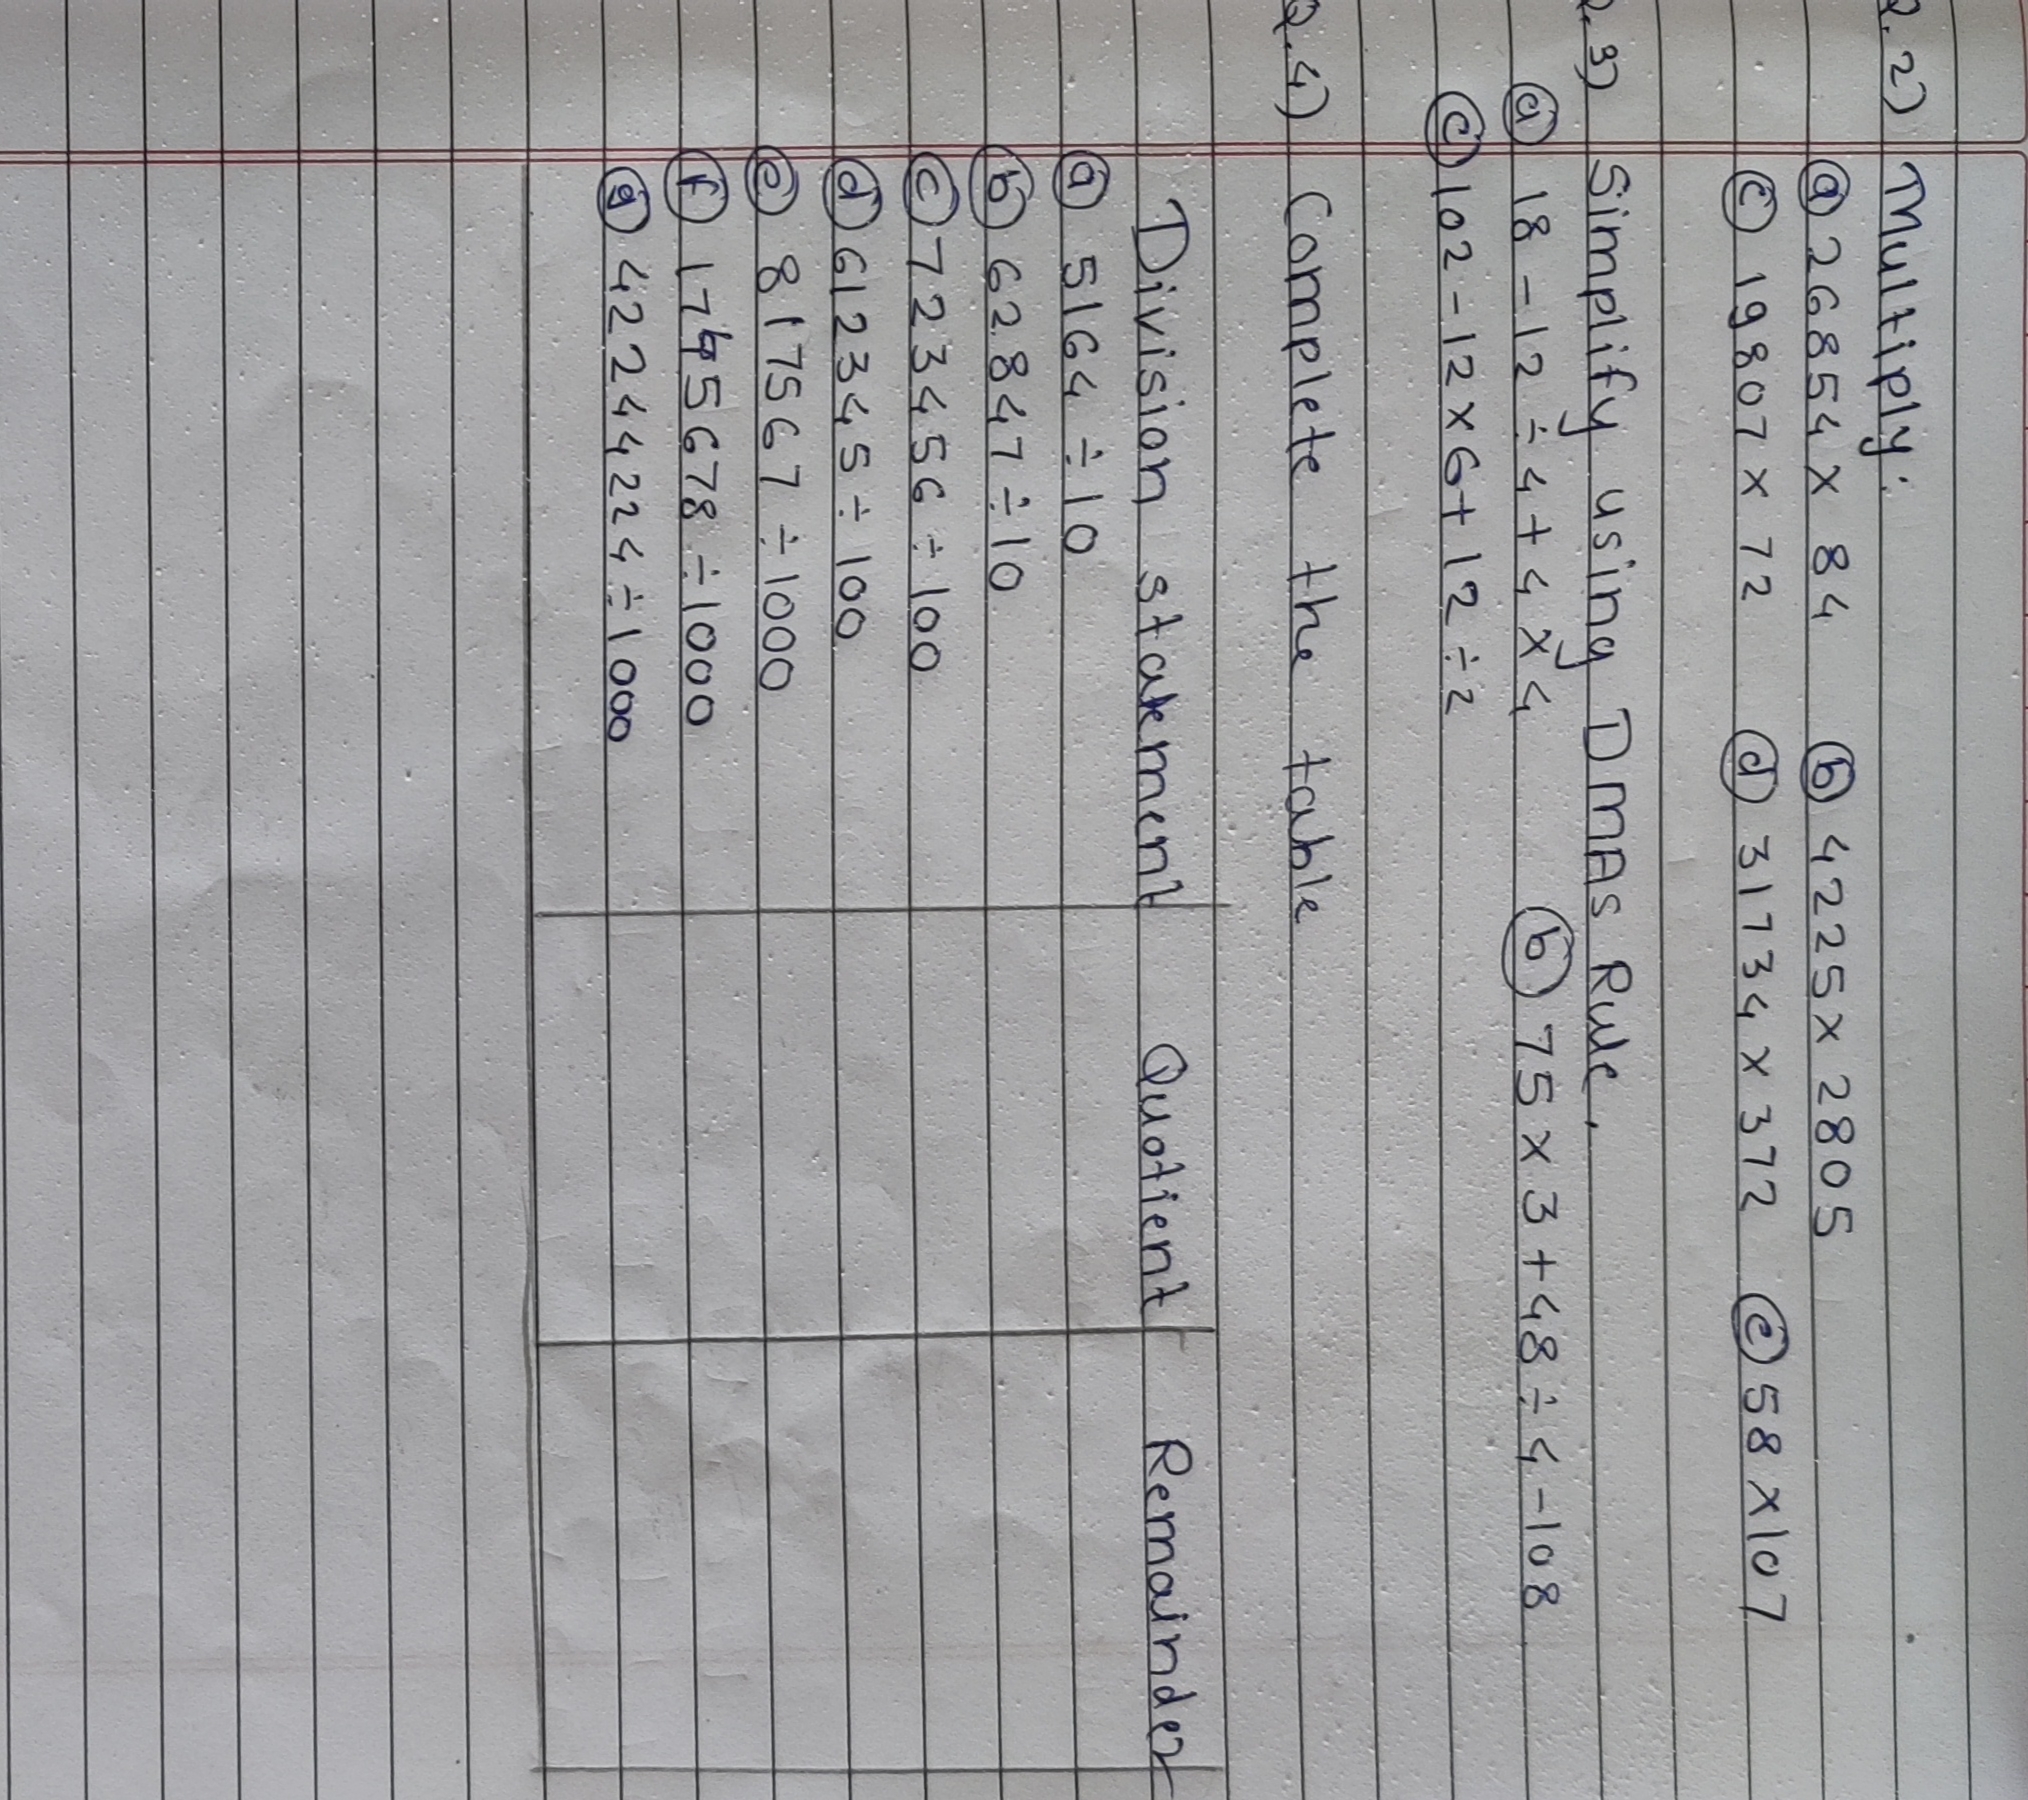 Q.2) Multiply:
ⓐ 26854 x 84 ⓑ 4225 x 2805
ⓒ 19807 x 72 ⓓ 31734 x 372 ⓔ 58 x 107
Q.3) Simplify using DMAS Rule.
ⓐ 18 - 12 ÷ 4 + 4 x 4 ⓑ 75 x 3 + 48 ÷ 4 - 108
ⓒ 102 - 12 x 6 + 12 ÷ 2
Q.4) Complete the table
Division statement Quotient Remainder
ⓐ 5164 ÷ 10
ⓑ 62847 ÷ 10
ⓒ 723456 ÷ 100
ⓓ 612345 ÷ 100
ⓔ 817567 ÷ 1000
ⓕ 17455678 ÷ 1000
ⓖ 42244224 ÷ 1000